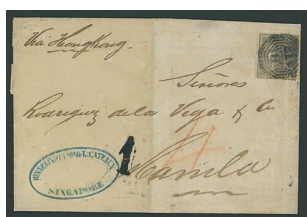 Via Hongkong.
Señores
Rodriguez de la Vega & Co
Manila
1
SINGAPORE